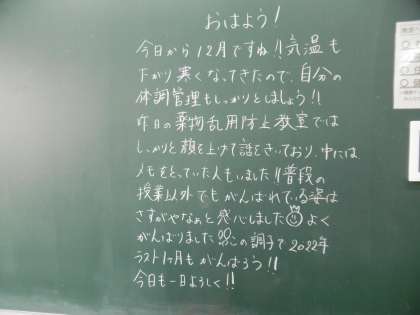 おはよう！
今日から12月ですね!!気温も
下がり寒くなってきたので、自分の
体調管理もしっかりとしましょう!!
昨日の薬物乱用防止教室では
しっかりと顔を上げて話をきいており、中には
メモをとっていた人もいました!!普段の
授業以外でもがんばれている姿は
さすがやなぁと感心しました よく
がんばりました この調子で2022年
ラスト1ヶ月もがんばろう!!
今日も一日よろしく!!